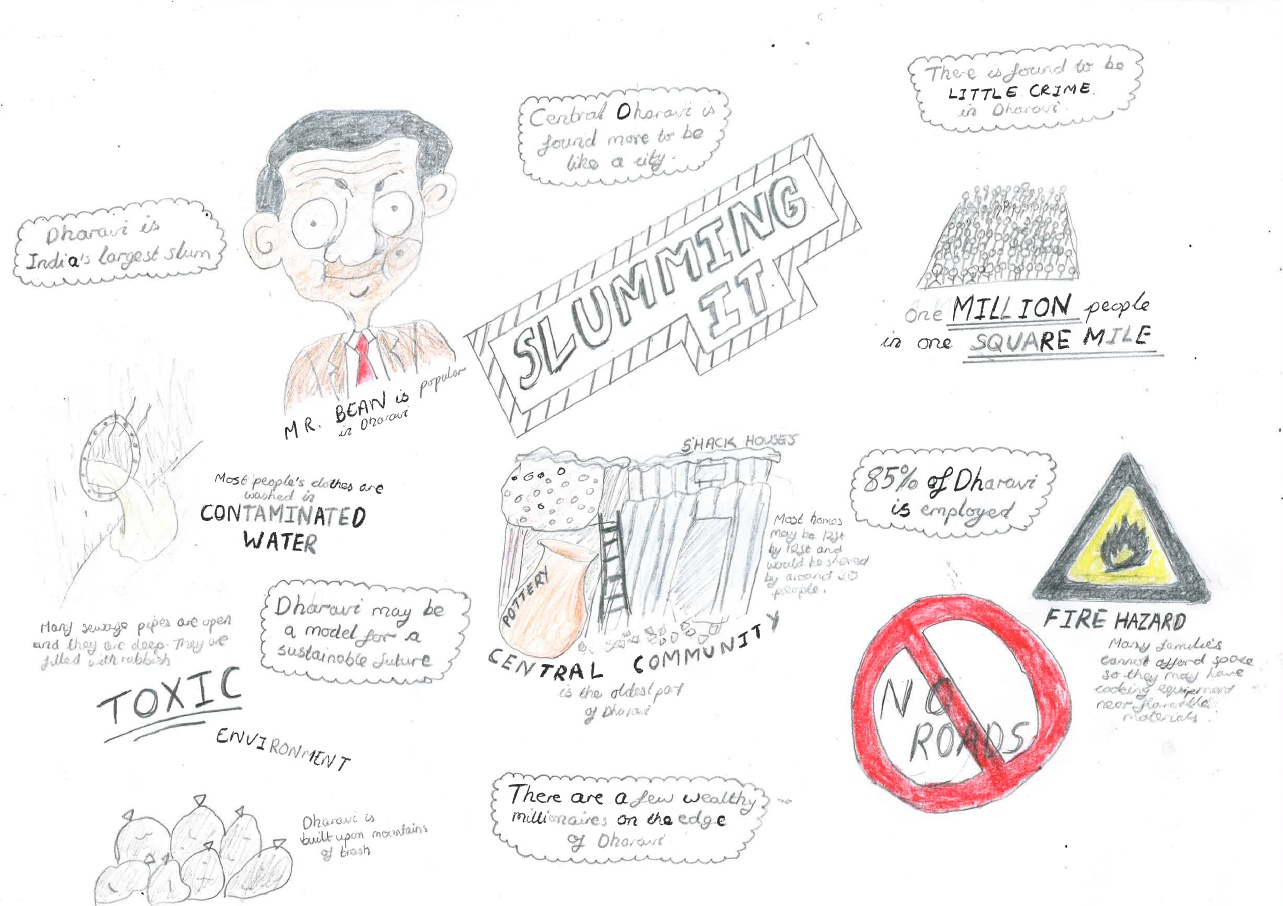 There is found to be
LITTLE CRIME.
in Dharavi.
Central Dharavi is
found more to be
like a city.
Dharavi is
India's largest slum
SLUMMING
IT
One MILLION people
in one SQUARE MILE
MR. BEAN is popular
in Dharavi
SHACK HOUSES
Most people's clothes are
washed in
CONTAMINATED
WATER
85% of Dharavi
is employed
Most homes
may be 12ft
by 12ft and
would be shared
by around 20
people.
POTTERY
CENTRAL COMMUNITY
is the oldest part
of Dharavi
FIRE HAZARD
Many families
cannot afford space
so they may have
cooking equipment
near flammable
materials.
Dharavi may be
a model for a
sustainable future
Many sewage pipes are open
and they are deep. They are
filled with rubbish
TOXIC
ENVIRONMENT
NO
ROADS
There are a few wealthy
millionaires on the edge
of Dharavi
Dharavi is
built upon mountains
of trash